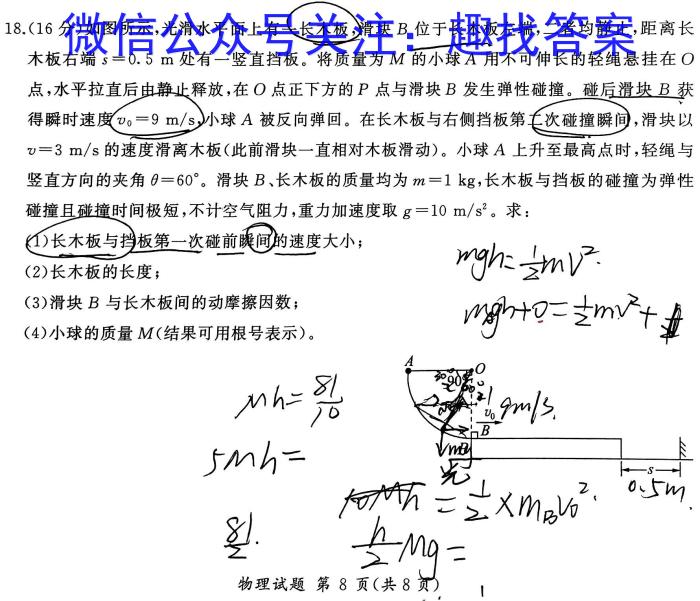 微信公众号关注：趣找答案
18.(16分)如图所示,光滑水平面上有一长木板,滑块B位于长木板左端,二者均静止,距离长
木板右端s=0.5 m处有一竖直挡板。将质量为M的小球A用不可伸长的轻绳悬挂在O
点,水平拉直后由静止释放,在O点正下方的P点与滑块B发生弹性碰撞。碰后滑块B获
得瞬时速度v₀=9 m/s,小球A被反向弹回。在长木板与右侧挡板第二次碰撞瞬间,滑块以
v=3 m/s的速度滑离木板(此前滑块一直相对木板滑动)。小球A上升至最高点时,轻绳与
竖直方向的夹角θ=60°。滑块B、长木板的质量均为m=1 kg,长木板与挡板的碰撞为弹性
碰撞且碰撞时间极短,不计空气阻力,重力加速度取g=10 m/s²。求:
(1)长木板与挡板第一次碰前瞬间的速度大小;
(2)长木板的长度;
(3)滑块B与长木板间的动摩擦因数;
(4)小球的质量M(结果可用根号表示)。
mgh=½mv².
mgh+0=½mv²+
A
O
90°
v₀
9m/s.
B
s
0.5m
Mh=81/10
5Mh=
81/2.
10Mh=½×m_B v₀².
h/2 Mg=
物理试题 第8页(共8页)